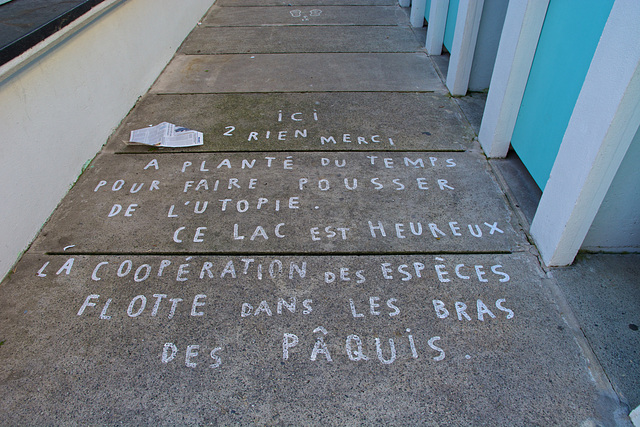 ici
2 RIEN MERCI
A PLANTÉ DU TEMPS
POUR FAIRE POUSSER
DE L'UTOPIE.
CE LAC EST HEUREUX
LÀ COOPÉRATION DES ESPÈCES
FLOTTE DANS LES BRAS
DES PÂQUIS.